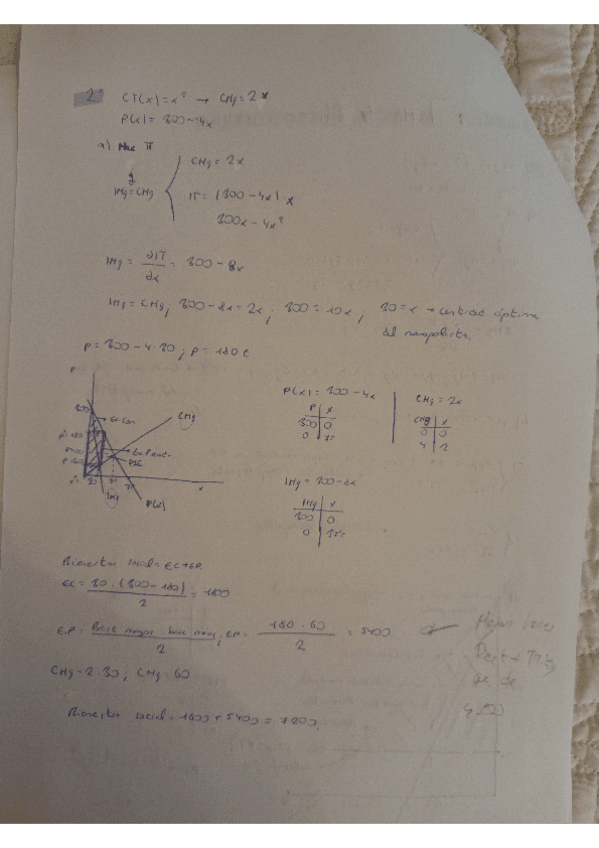 2 CT(x) = x² → CMg = 2x
P(x) = 300 - 4x
a) Max π
IMg = CMg
CMg = 2x
IT = (300 - 4x) · x
300x - 4x²
IMg = ∂IT/∂x = 300 - 8x
IMg = CMg ; 300 - 8x = 2x ; 300 = 10x ; 30 = x → cantidad óptima
del monopolista.
P = 300 - 4 · 30 ; P = 180 €
P
300
CMg
30
75
IMg
P(x)
x
P(x) = 300 - 4x
P x
300 0
0 75
CMg = 2x
CMg x
0 0
4 2
IMg = 300 - 8x
IMg x
300 0
0 37'5
Bienestar social = EC + EP
EC = 30 · (300 - 180) / 2 = 1800
EP = Base mayor · base menor / 2 ; EP = 180 · 60 / 2 = 5400
CMg = 2 · 30 ; CMg = 60
Bienestar social = 1800 + 5400 = 7200.